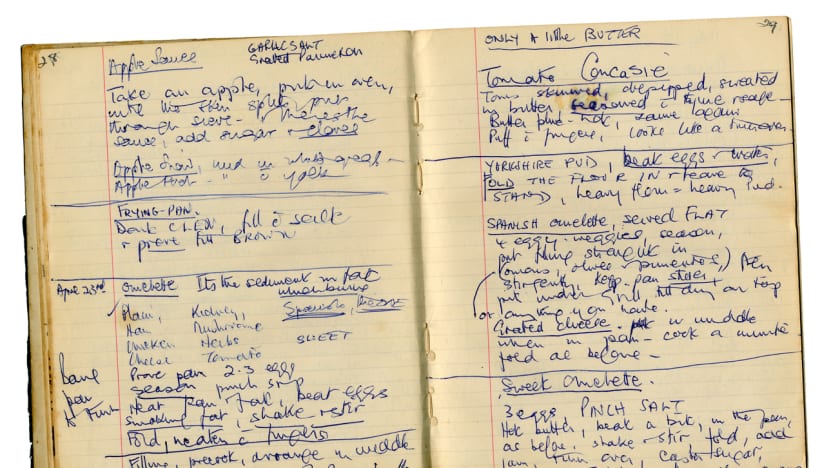 28
Apple Sauce
GARLIC SALT
Grated Parmesan
Take an apple, put in oven,
until the skin splits, pass
through sieve -
sauce, add sugar + cloves
Apple Snow,
Apple
FRYING-PAN.
Don't CLEAN, fill c̄ salt
+ prove till BROWN
April 23rd omelette Its the sediment in fat
which burns
Plain, Kidney, Spanish,
Ham Mushrooms
Chicken Herbs SWEET
Cheese Tomato
Prove pan 2-3 eggs
season pinch
Heat pan, fat, beat eggs
smoking fat, shake + stir
Fold, neaten c̄
Filling, precook, arrange in middle
29
ONLY A little BUTTER
Tomato Concasie
Toms skinned, depipped, sweated
in butter seasoned c̄
Butter
Puff looks like a turnover.
YORKSHIRE PUD, beat eggs + water,
FOLD THE FLOUR IN + leave to
STAND, heavy flour = heavy Pud.
SPANISH omelette, served FLAT
4 eggy-veggies, season,
put filling straight in
(tomatoes, olives + pimentoes,) Then
stir gently, keep pan still +
put under grill, till dry on top
or anything you have.
Grated cheese - put in middle
when in pan - cook a minute
fold as before -
Sweet Omelette.
3 eggs, PINCH SALT
Hot butter, beat a bit, in the pan,
as before, shake + stir, fold, add
jam, turn over, castor sugar,